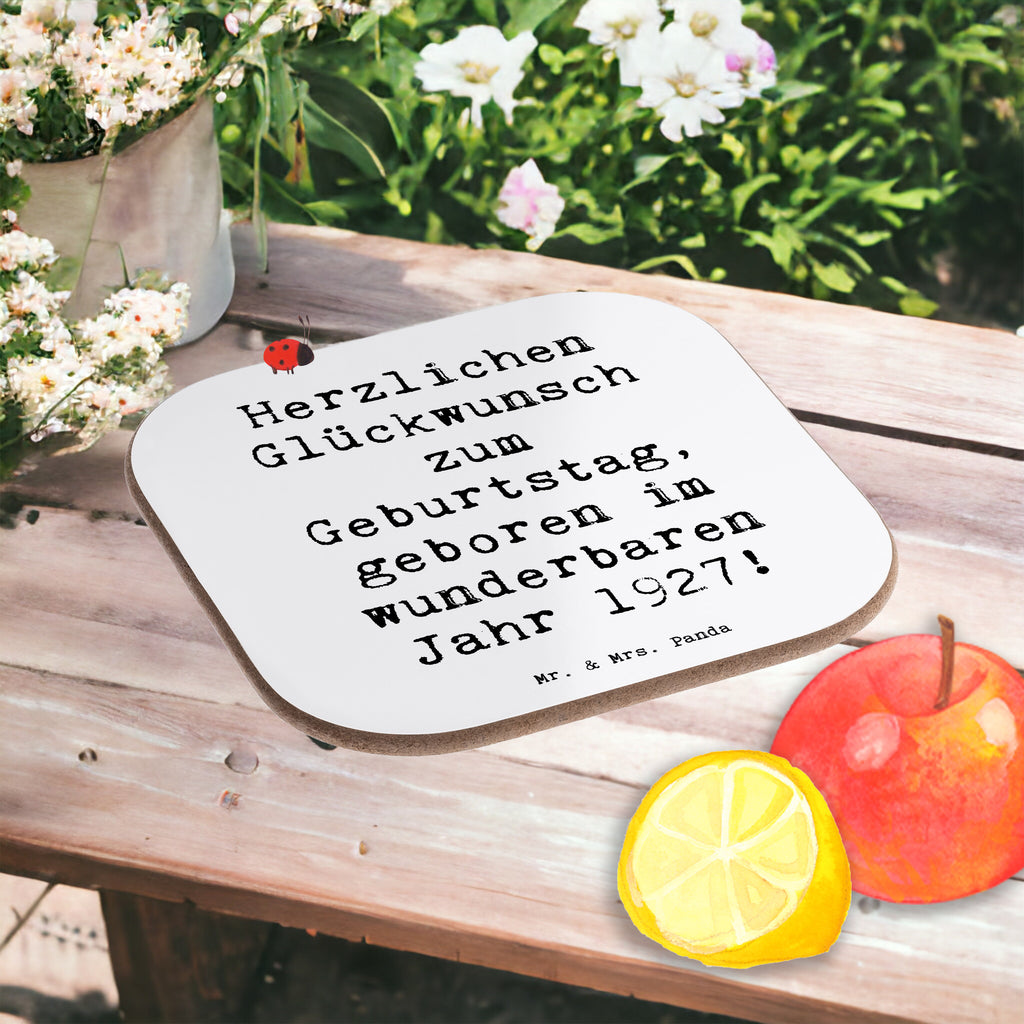 Herzlichen
Glückwunsch
zum
Geburtstag,
geboren im
wunderbaren
Jahr 1927!
Mr. & Mrs. Panda